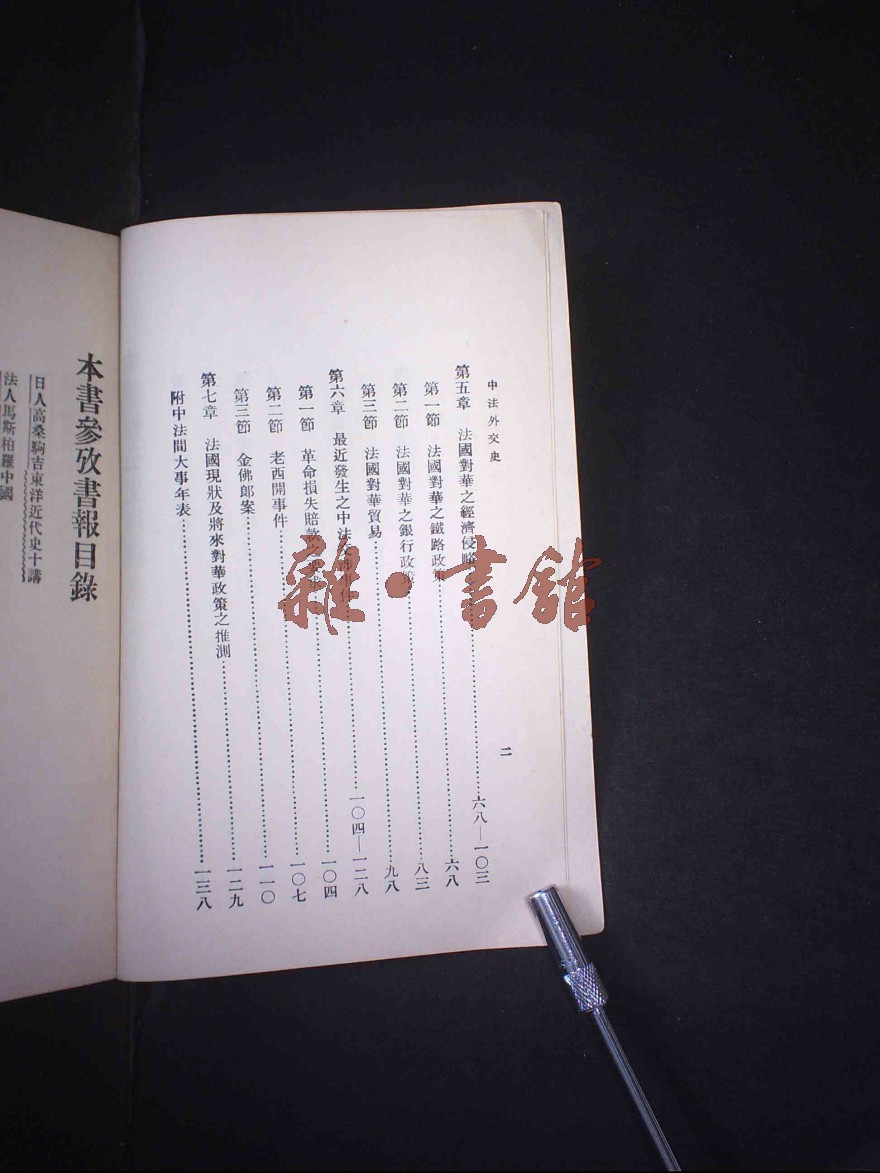 中法外交史
二
第五章 法國對華之經濟侵略……六八—一〇三
第一節 法國對華之鐵路政策……六八
第二節 法國對華之銀行政策……八三
第三節 法國對華貿易……九八
第六章 最近發生之中法交涉事件……一〇四—一二八
第一節 革命損失賠款之要求……一〇四
第二節 老西開事件……一〇七
第三節 金佛郎案……一一〇
第七章 法國現狀及將來對華政策之推測……一二九
附中法間大事年表……一三八
本書參攷書報目錄
日人高桑駒吉東洋近代史十講
法人馬斯柏羅中國
雜·書館